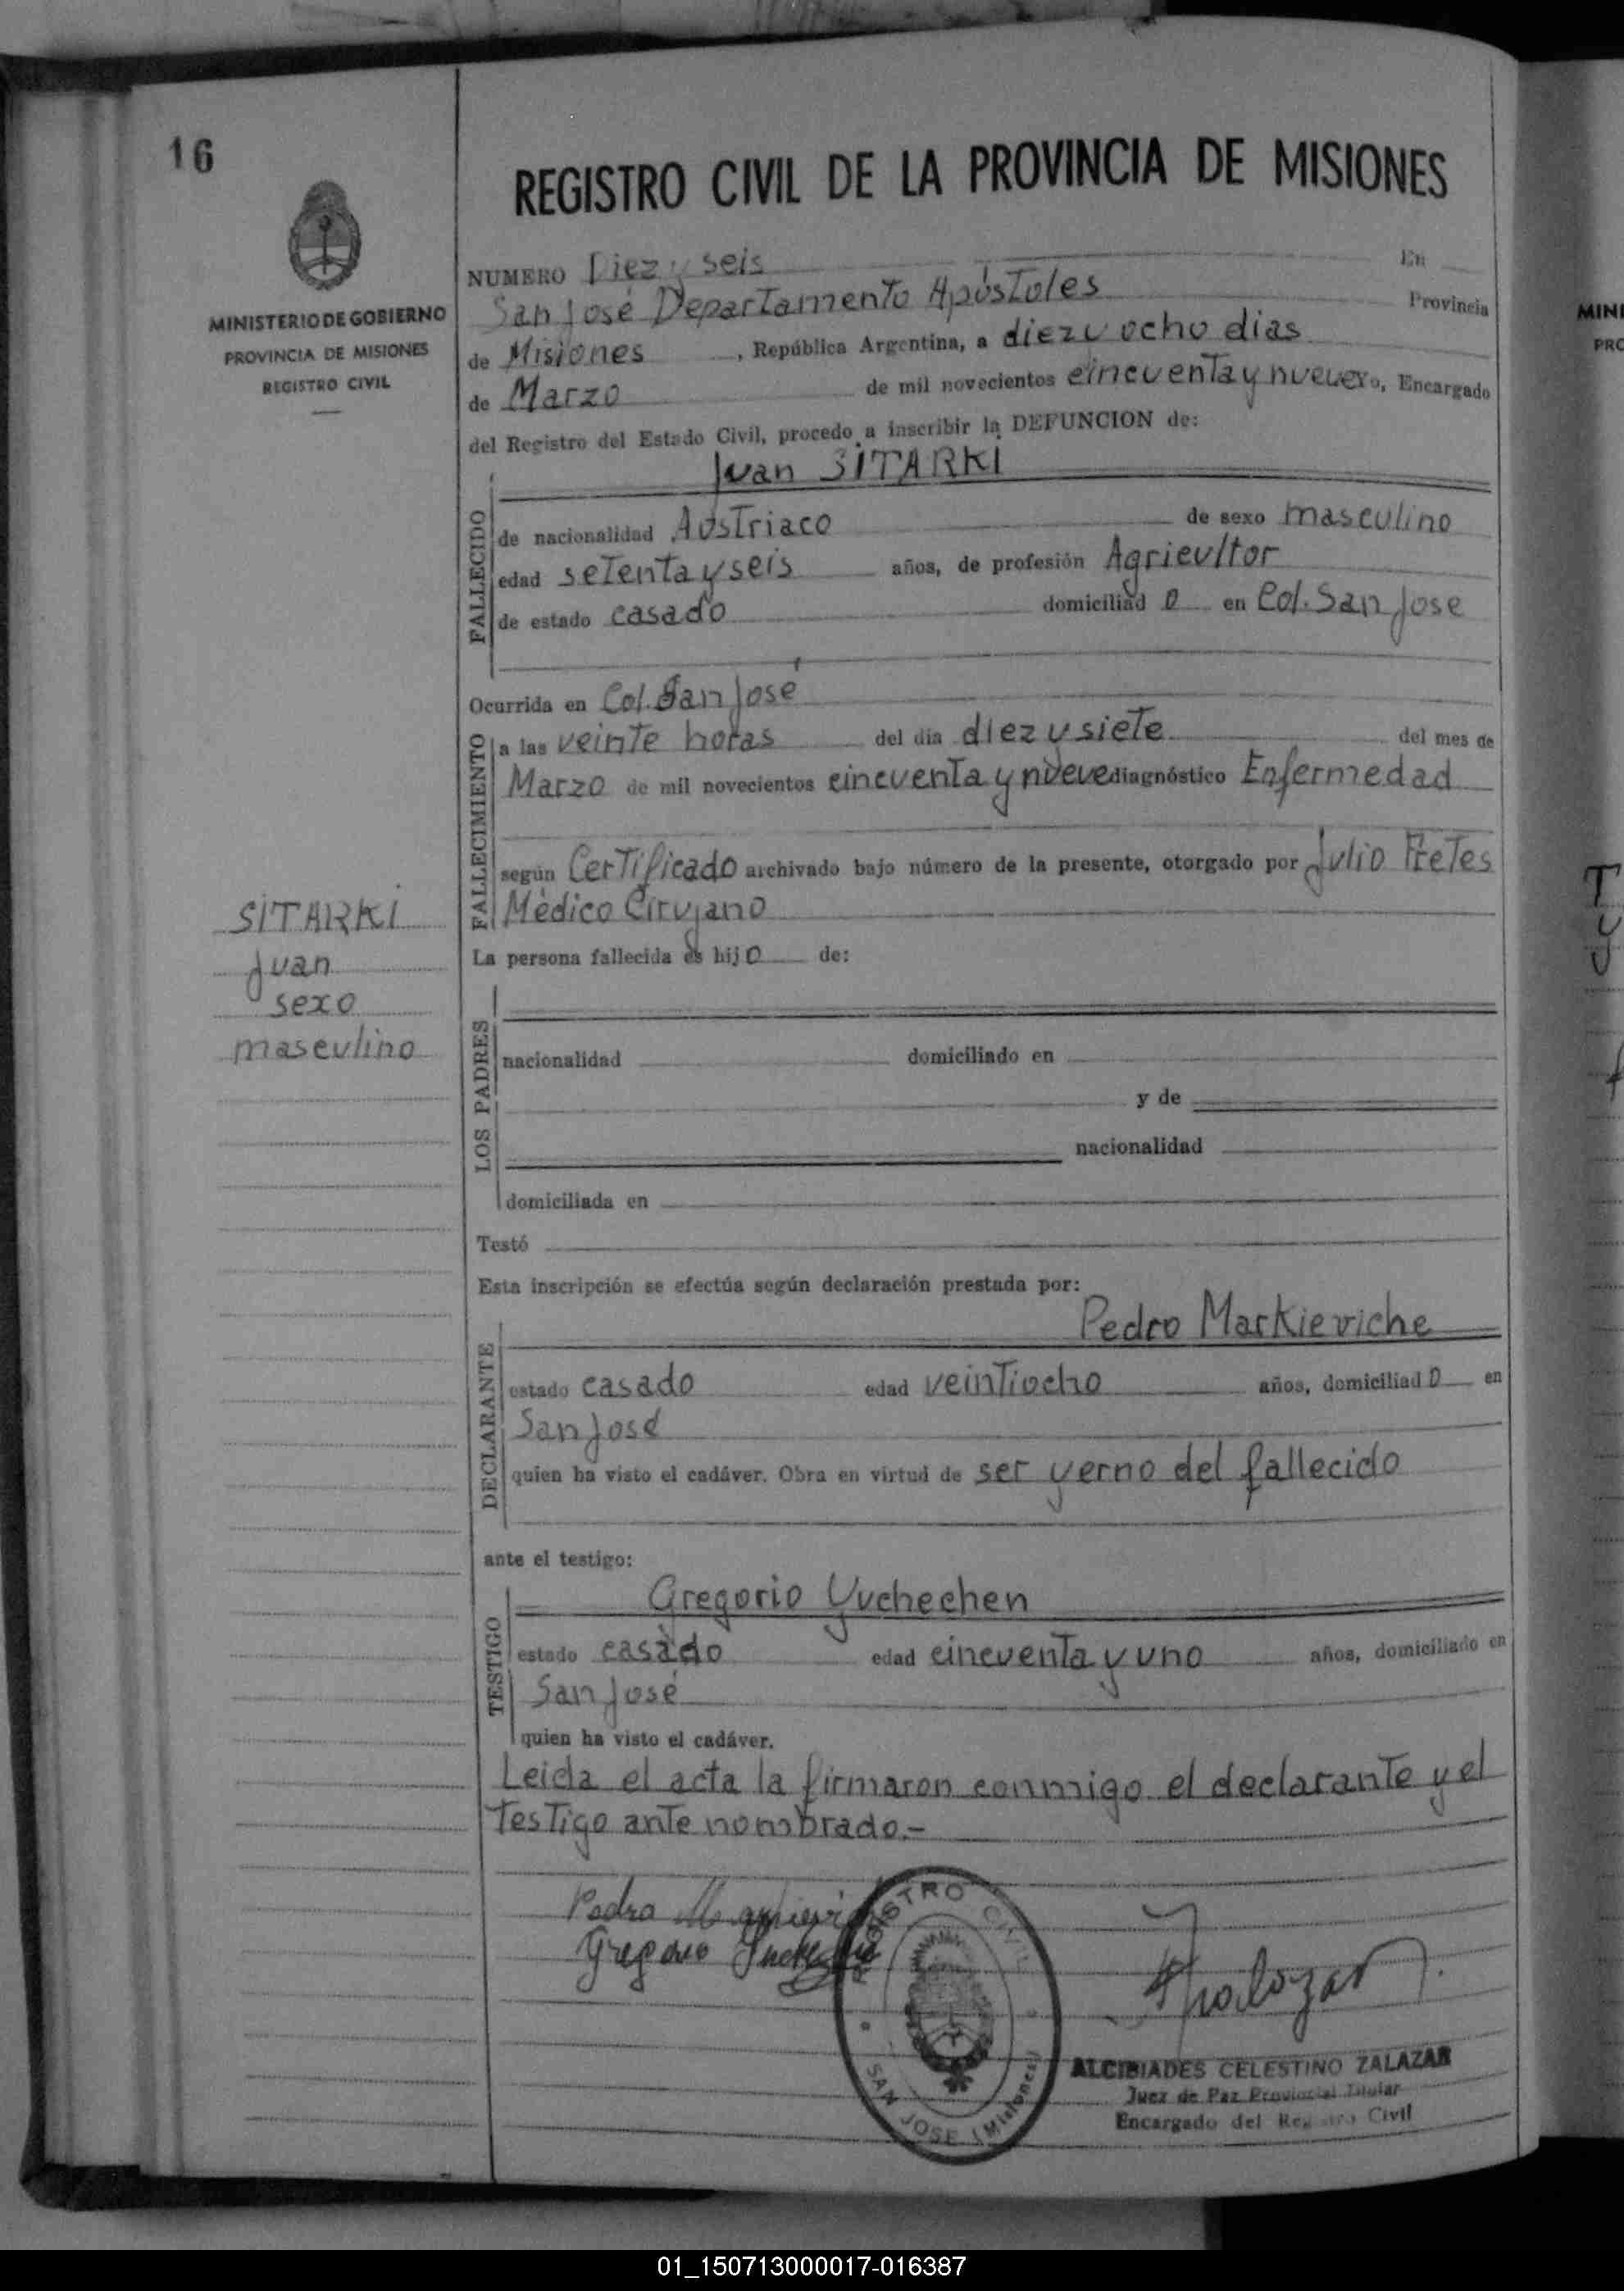 16
REGISTRO CIVIL DE LA PROVINCIA DE MISIONES
MINISTERIO DE GOBIERNO
PROVINCIA DE MISIONES
REGISTRO CIVIL
NUMERO Diez y seis En
San José Departamento Apóstoles Provincia
de Misiones , República Argentina, a diez y ocho dias
de Marzo de mil novecientos cincuenta y nueve yo, Encargado
del Registro del Estado Civil, procedo a inscribir la DEFUNCION de:
Juan SITARKI
FALLECIDO
de nacionalidad Austriaco de sexo masculino
edad setenta y seis años, de profesión Agricultor
de estado casado domiciliad o en Col. San Jose
Ocurrida en Col. San José
FALLECIMIENTO
a las veinte horas del dia diez y siete del mes de
Marzo de mil novecientos cincuenta y nueve diagnóstico Enfermedad
según Certificado archivado bajo número de la presente, otorgado por Julio Fretes
Médico Cirujano
SITARKI
Juan
sexo
masculino
La persona fallecida es hij o de:
LOS PADRES
nacionalidad domiciliado en
y de
nacionalidad
domiciliada en
Testó
Esta inscripción se efectúa según declaración prestada por:
Pedro Markieviche
DECLARANTE
estado casado edad veintiocho años, domiciliad o en
San José
quien ha visto el cadáver. Obra en virtud de ser yerno del fallecido
ante el testigo:
Gregorio Yuchechen
TESTIGO
estado casado edad cincuenta y uno años, domiciliado en
San José
quien ha visto el cadáver.
Leida el acta la firmaron conmigo el declarante y el
testigo ante nombrado.-
Pedro
Gregorio
REGISTRO CIVIL
SAN JOSE (Misiones)
ALCIBIADES CELESTINO ZALAZAR
Juez de Paz Provincial Titular
Encargado del Registro Civil
MINI
PRO
01_150713000017-016387